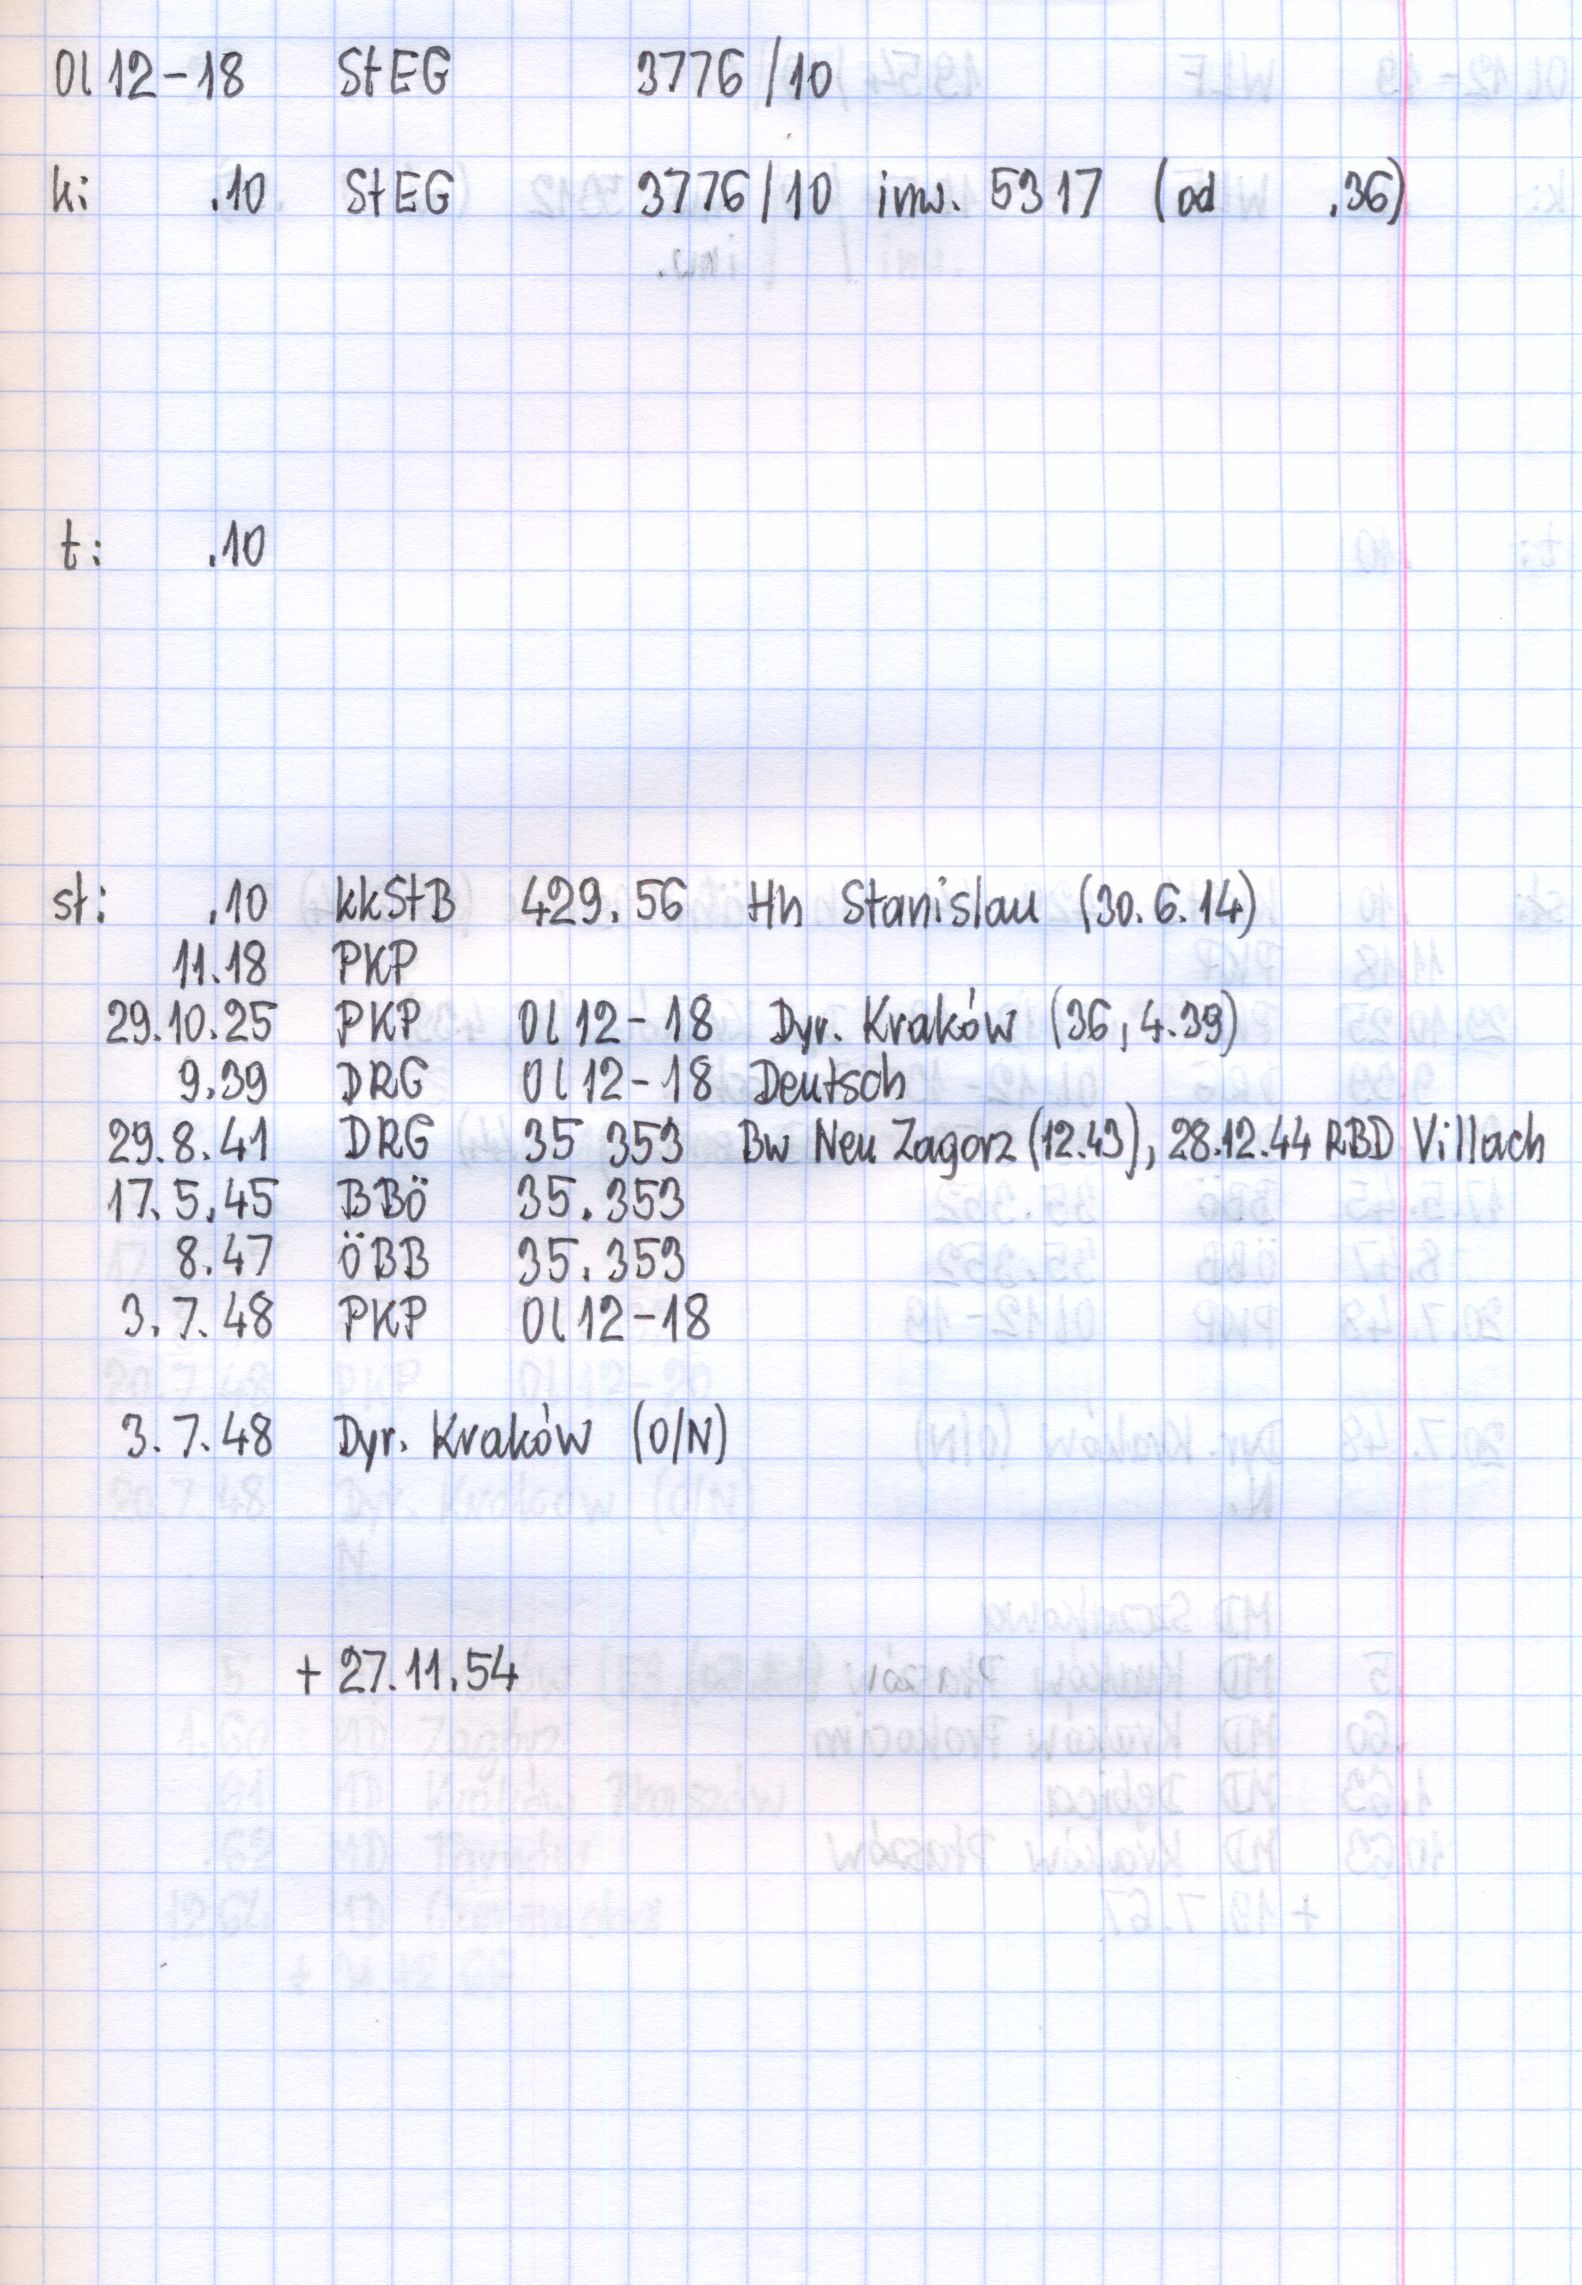 Ol 12-18 StEG 3776/10
k: .10 StEG 3776/10 inw. 5317 (od .36)
t: .10
st: .10 kkStB 429.56 Hh Stanislau (30.6.14)
11.18 PKP
29.10.25 PKP Ol 12-18 Dyr. Kraków (36, 4.39)
9.39 DRG Ol 12-18 Deutsch
29.8.41 DRG 35 353 Bw Neu Zagorz (12.43), 28.12.44 RBD Villach
17.5.45 BBÖ 35.353
8.47 ÖBB 35.353
3.7.48 PKP Ol 12-18
3.7.48 Dyr. Kraków (O/N)
+ 27.11.54